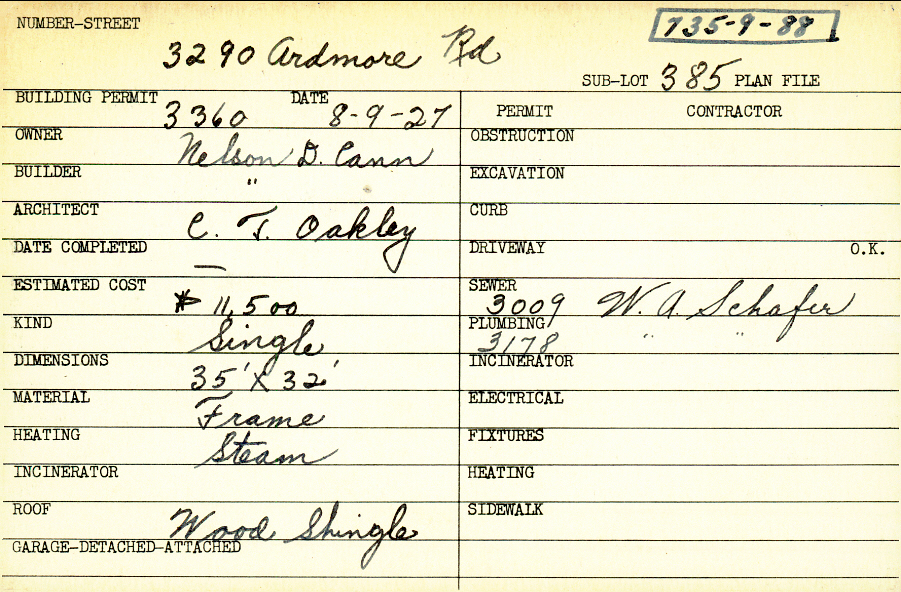 NUMBER-STREET
735-9-88
3290 Ardmore Rd
SUB-LOT 385 PLAN FILE
BUILDING PERMIT 3360 DATE 8-9-27
OWNER Nelson D. Cann
BUILDER "
ARCHITECT C. T. Oakley
DATE COMPLETED —
ESTIMATED COST $11,500
KIND Single
DIMENSIONS 35' X 32'
MATERIAL Frame
HEATING Steam
INCINERATOR
ROOF Wood Shingle
GARAGE-DETACHED-ATTACHED
PERMIT CONTRACTOR
OBSTRUCTION
EXCAVATION
CURB
DRIVEWAY O.K.
SEWER 3009 W. A. Schafer
PLUMBING 3178 " "
INCINERATOR
ELECTRICAL
FIXTURES
HEATING
SIDEWALK